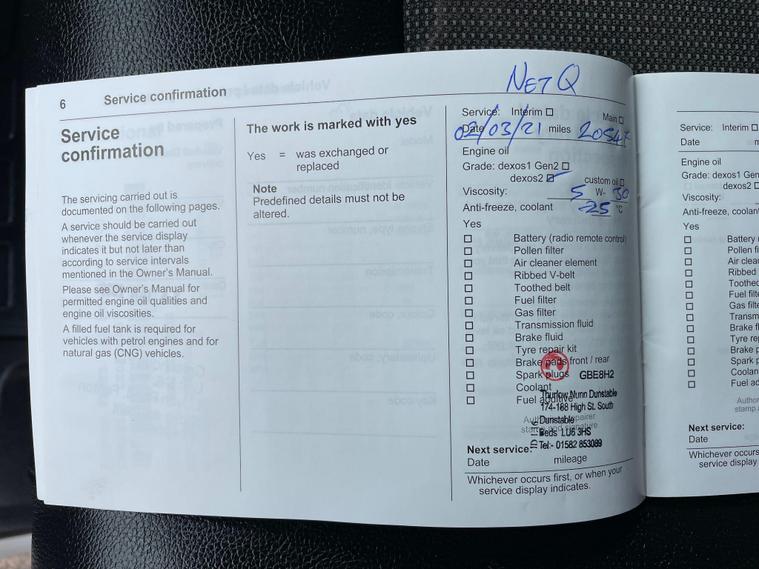 6 Service confirmation
Service
confirmation
The servicing carried out is
documented on the following pages.
A service should be carried out
whenever the service display
indicates it but not later than
according to service intervals
mentioned in the Owner's Manual.
Please see Owner's Manual for
permitted engine oil qualities and
engine oil viscosities.
A filled fuel tank is required for
vehicles with petrol engines and for
natural gas (CNG) vehicles.
The work is marked with yes
Yes = was exchanged or
replaced
Note
Predefined details must not be
altered.
NET Q
Service: Interim □ Main □
Date 02/03/21 miles
Engine oil
Grade: dexos1 Gen2 □
dexos2 □ custom oil □
Viscosity: 5 W- 30
Anti-freeze, coolant -25 °C
Yes
□ Battery (radio remote control)
□ Pollen filter
□ Air cleaner element
□ Ribbed V-belt
□ Toothed belt
□ Fuel filter
□ Gas filter
□ Transmission fluid
□ Brake fluid
□ Tyre repair kit
□ Brake pads front / rear
□ Spark plugs GBE8H2
□ Coolant
□ Fuel additive
Thurlow Nunn Dunstable
174-188 High St. South
Dunstable
Beds LU6 3HS
Tel:- 01582 853089
Next service:
Date mileage
Whichever occurs first, or when your
service display indicates.
Service: Interim □
Date
Engine oil
Grade: dexos1 Gen
dexos2 □
Viscosity:
Anti-freeze, coolant
Yes
□ Battery
□ Pollen fi
□ Air clea
□ Ribbed
□ Toothed
□ Fuel filt
□ Gas filte
□ Transm
□ Brake fl
□ Tyre re
□ Brake p
□ Spark p
□ Coolan
□ Fuel ad
Author
stamp a
Next service:
Date
Whichever occurs
service display